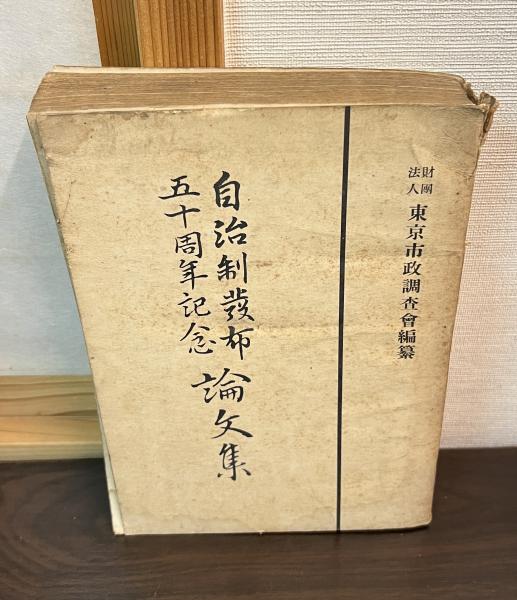 財團
法人
東京市政調査會編纂
自治制發布
五十周年記念
論文集